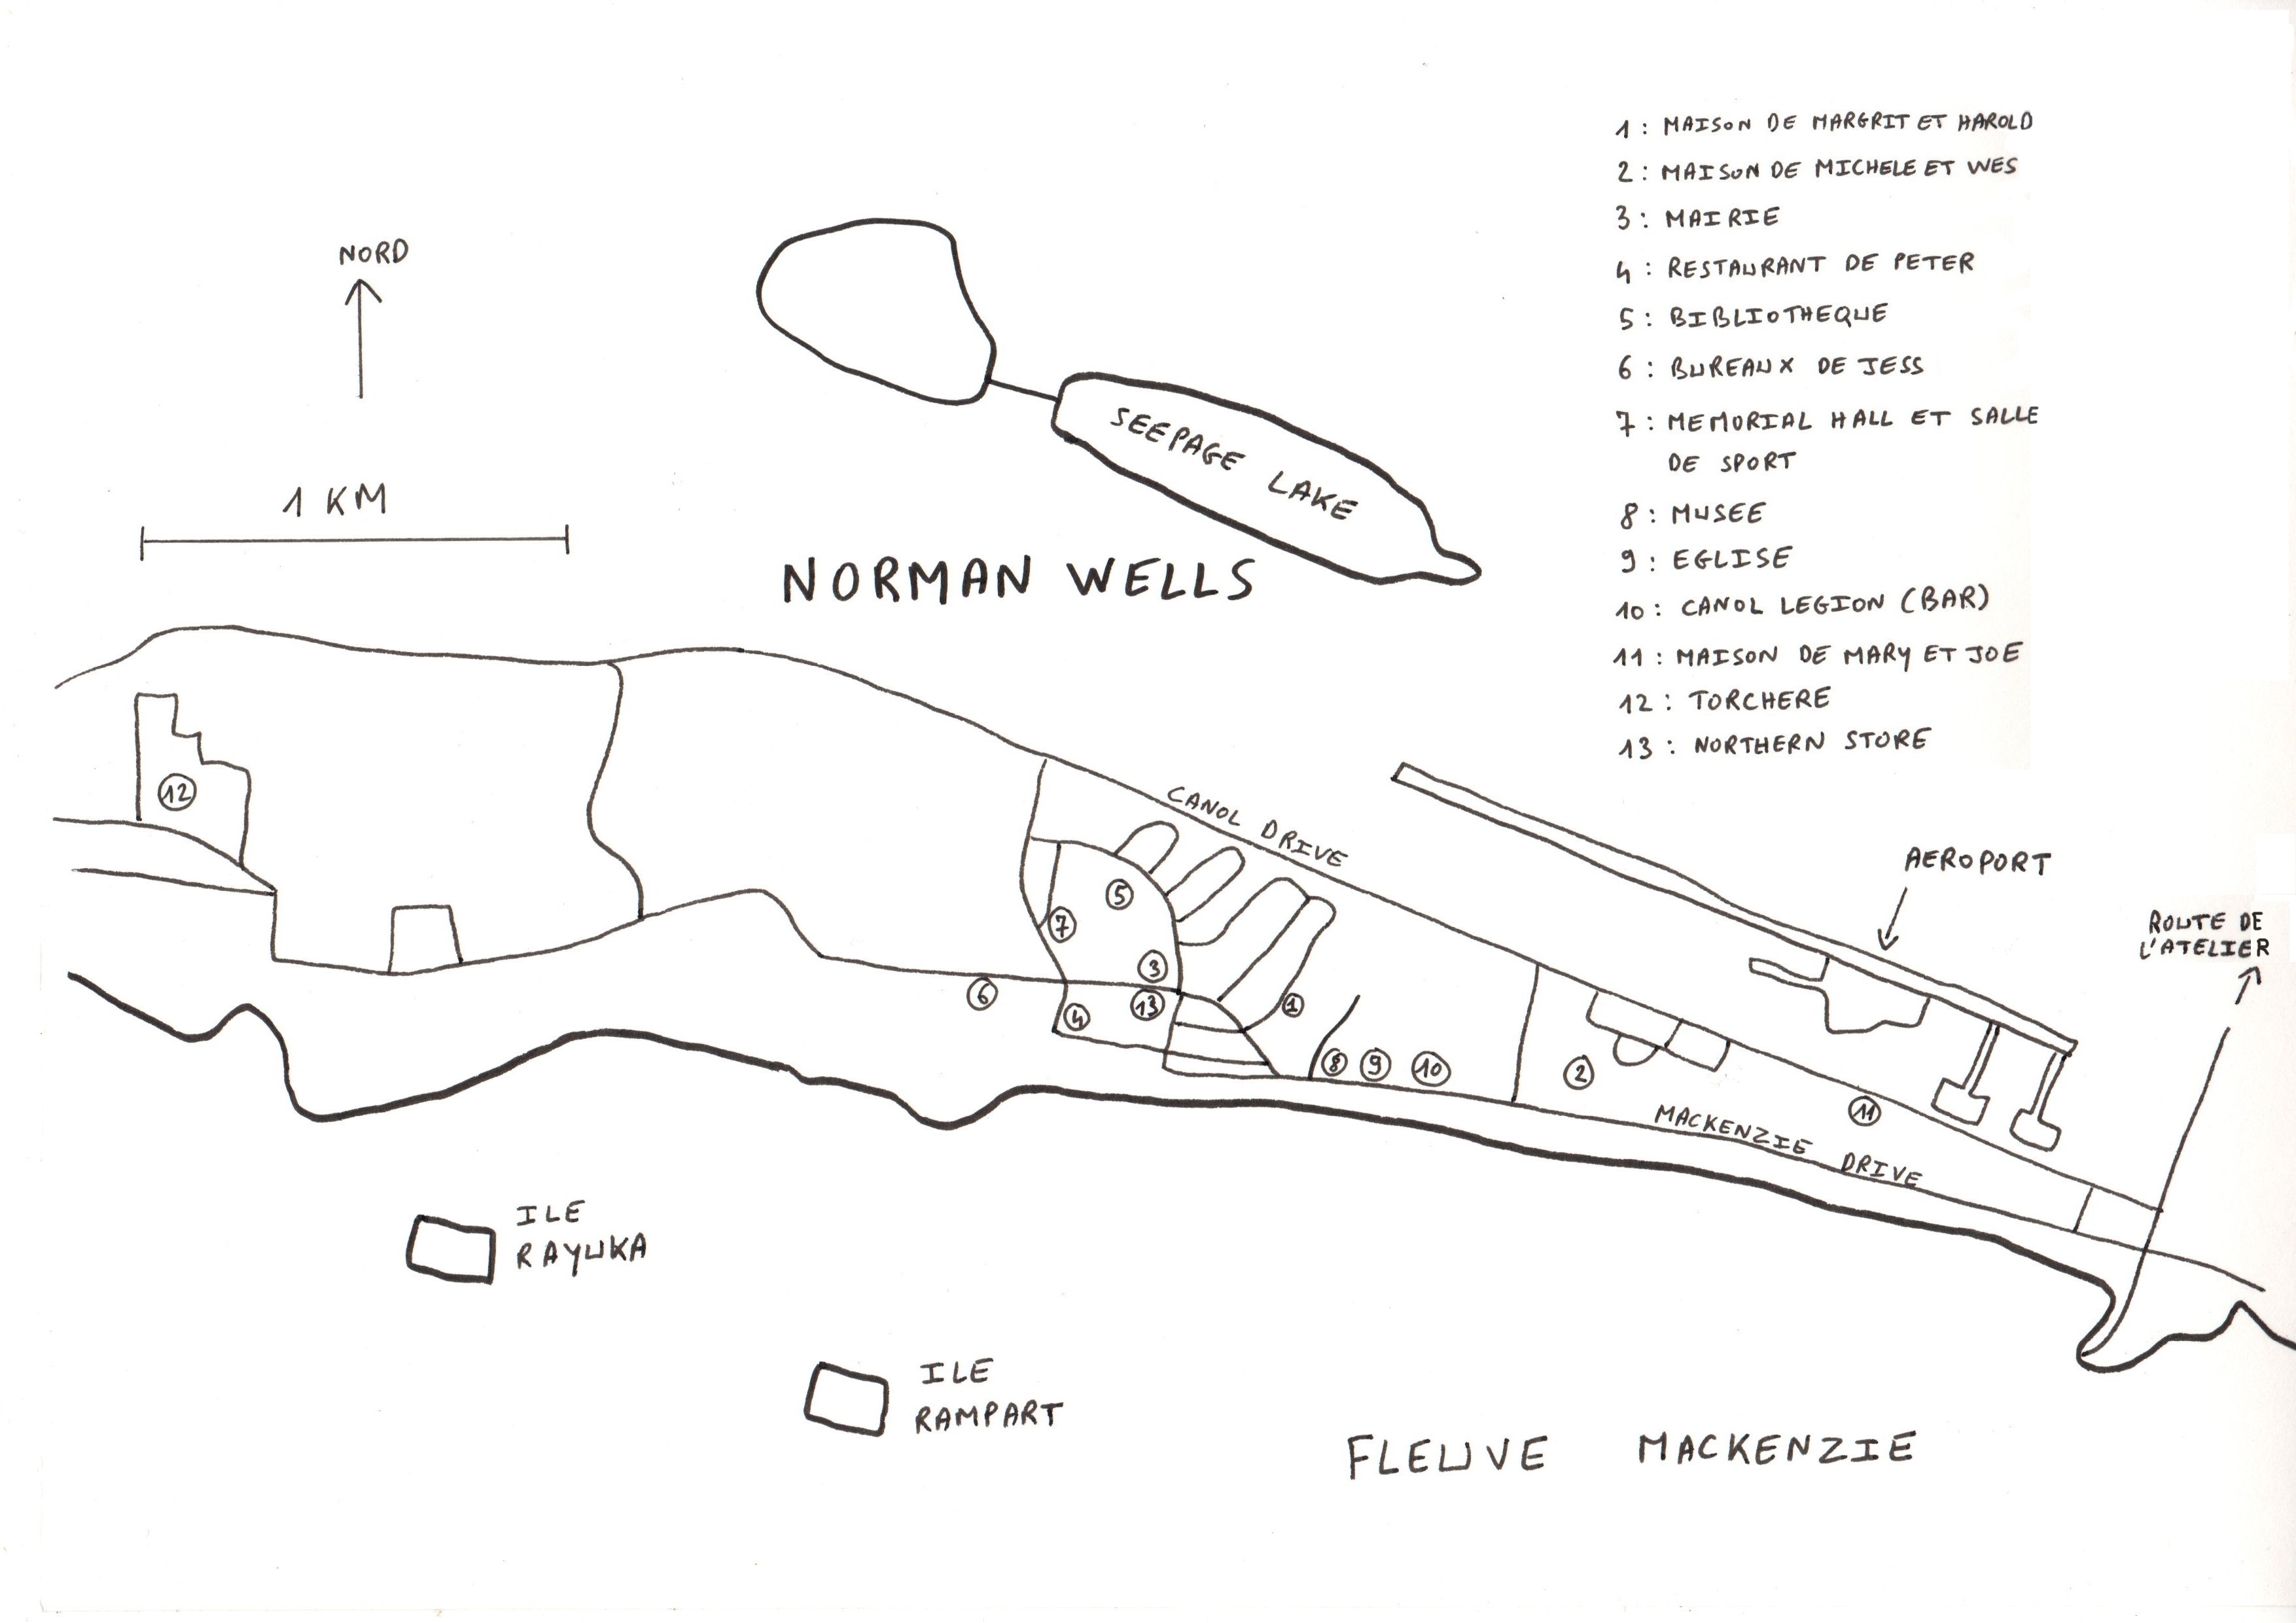 1 : MAISON DE MARGRIT ET HAROLD
2 : MAISON DE MICHELE ET WES
3 : MAIRIE
4 : RESTAURANT DE PETER
5 : BIBLIOTHEQUE
6 : BUREAUX DE JESS
7 : MEMORIAL HALL ET SALLE
DE SPORT
8 : MUSEE
9 : EGLISE
10 : CANOL LEGION (BAR)
11 : MAISON DE MARY ET JOE
12 : TORCHERE
13 : NORTHERN STORE
NORD
1 KM
SEEPAGE LAKE
NORMAN WELLS
CANOL DRIVE
AEROPORT
ROUTE DE
L'ATELIER
12
5
7
3
6
4
13
1
8
9
10
2
11
MACKENZIE DRIVE
ILE
RAYUKA
ILE
RAMPART
FLEUVE MACKENZIE